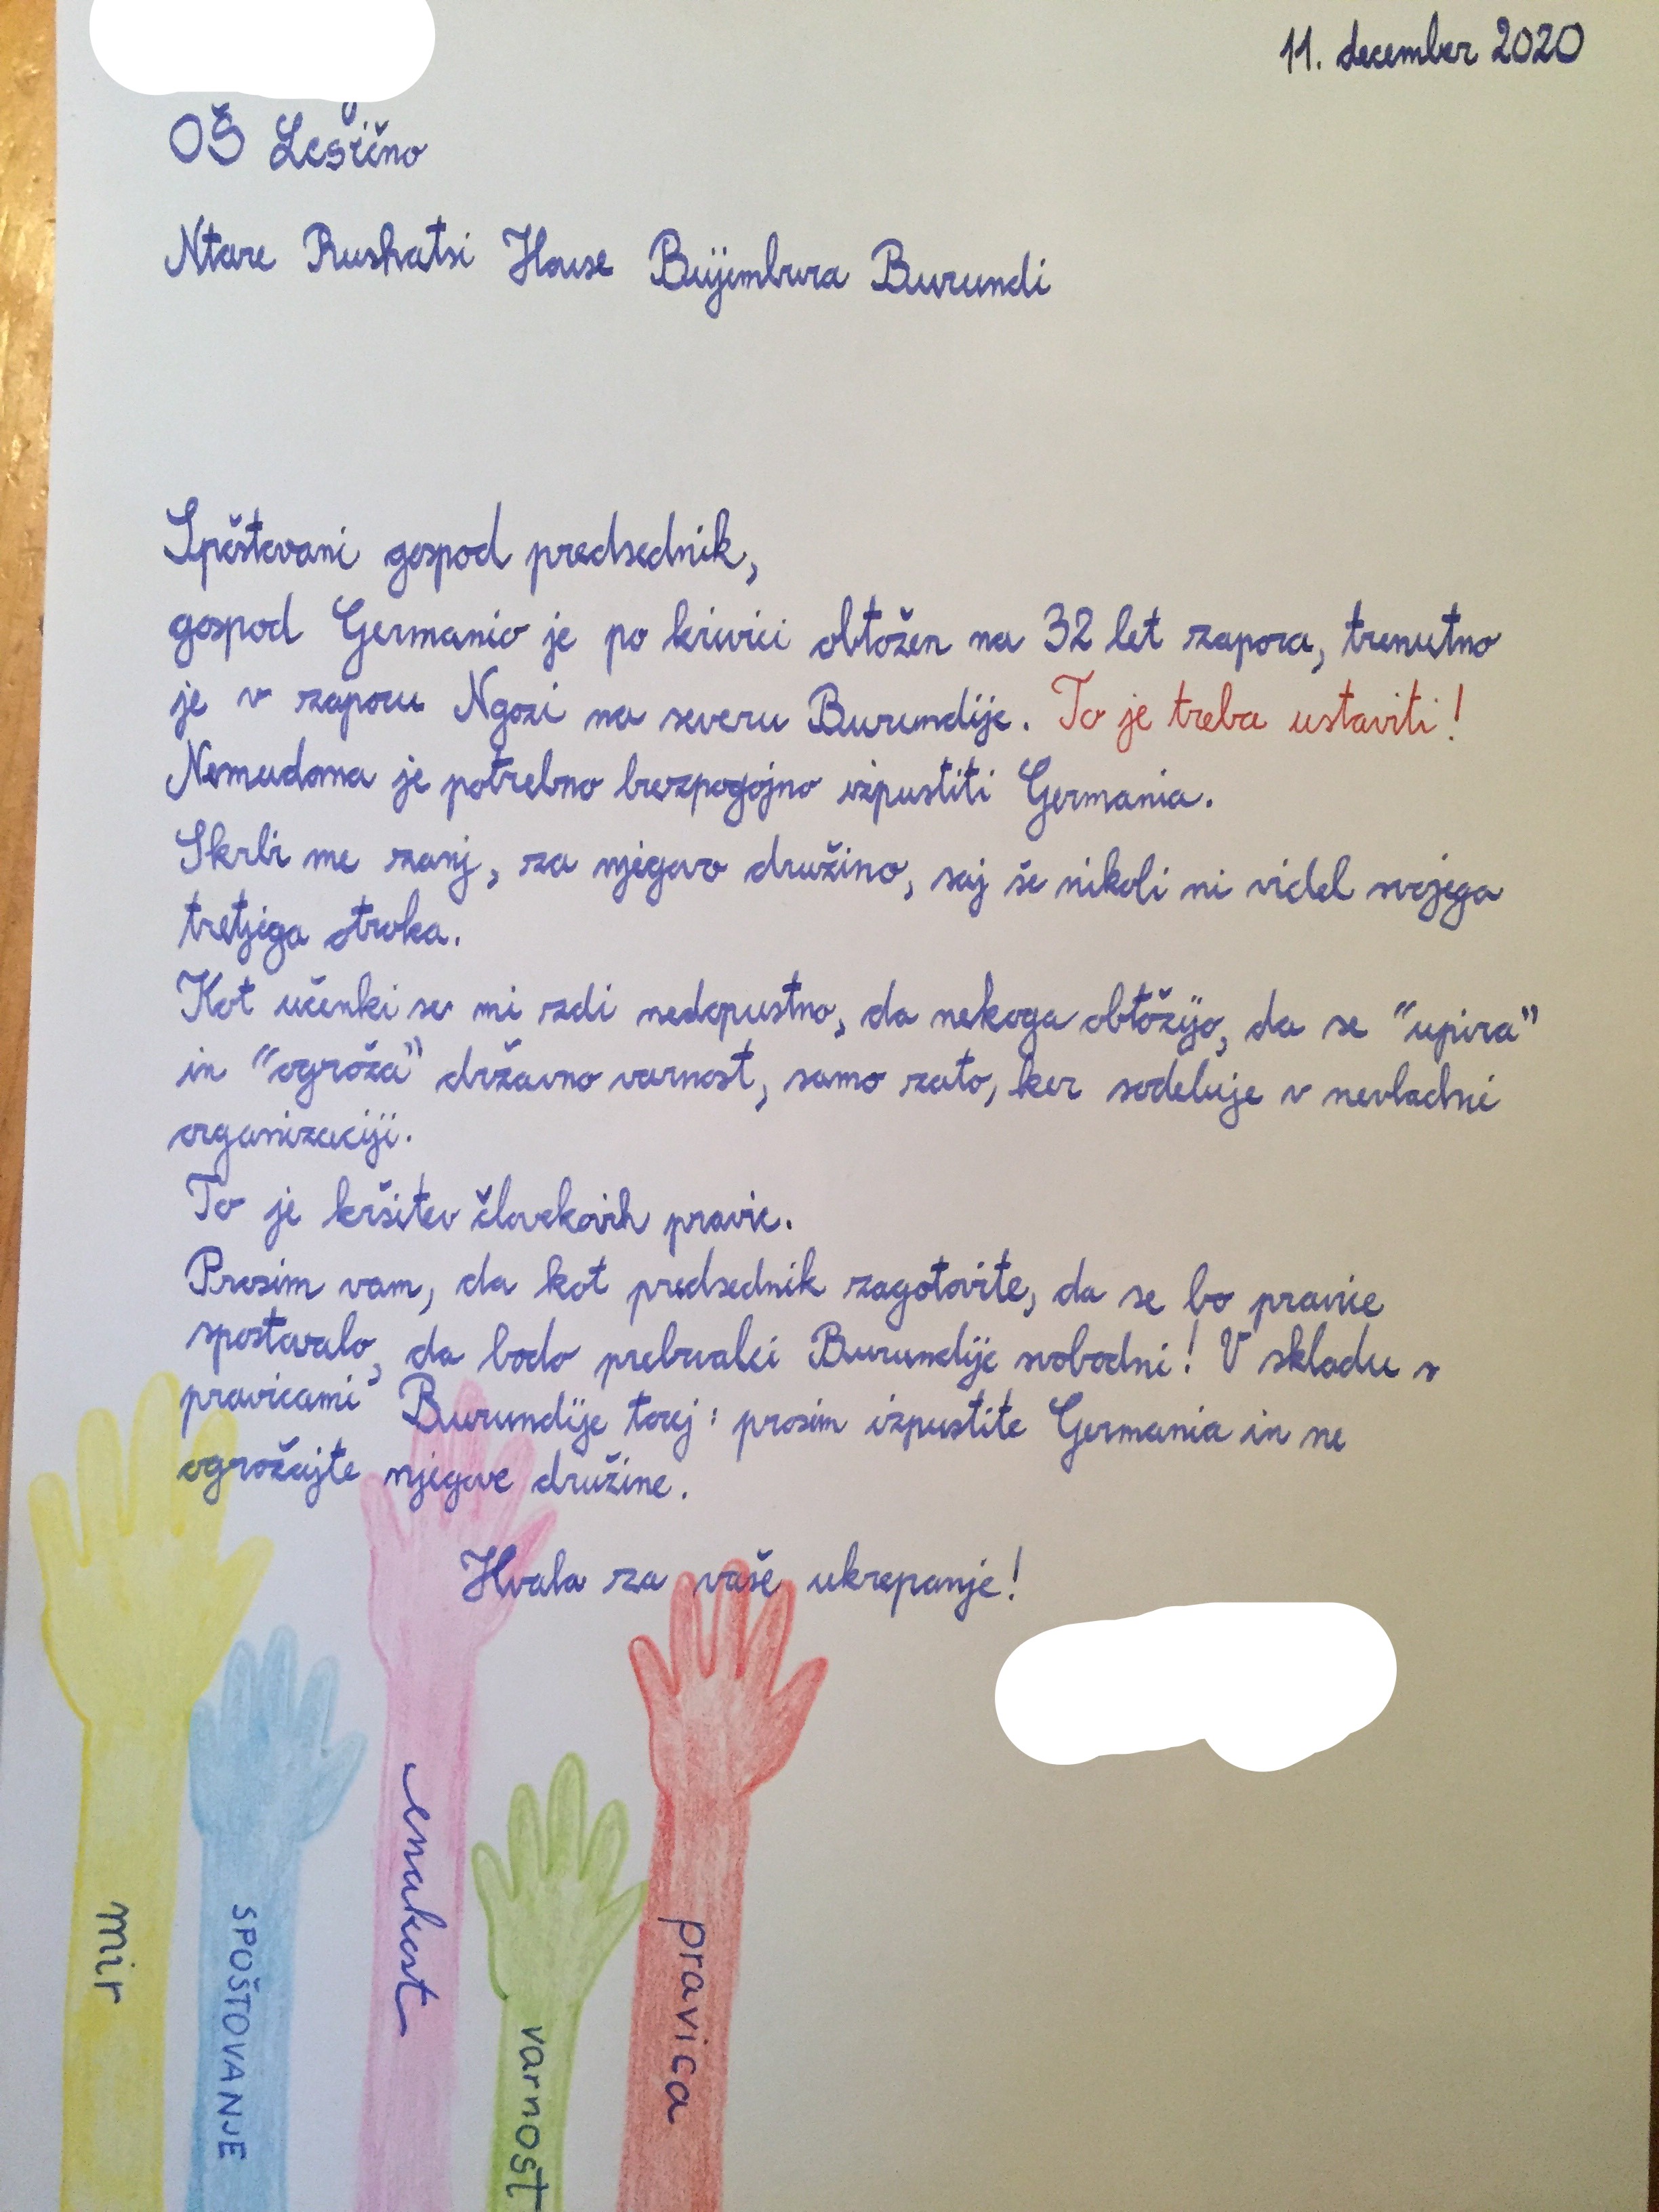 11. december 2020
OŠ Lesično
Ntare Rushatsi House Bujumbura Burundi
Spoštovani gospod predsednik,
gospod Germanio je po krivici obtožen na 32 let zapora, trenutno
je v zaporu Ngozi na severu Burundije. To je treba ustaviti!
Nemudoma je potrebno brezpogojno izpustiti Germania.
Skrbi me zanj, za njegovo družino, saj še nikoli ni videl svojega
tretjega otroka.
Kot učenki se mi zdi nedopustno, da nekoga obtožijo, da se "upira"
in "ogroža" državno varnost, samo zato, ker sodeluje v nevladni
organizaciji.
To je kršitev človekovih pravic.
Prosim vam, da kot predsednik zagotovite, da se bo pravice
spostovalo, da bodo prebivalci Burundije svobodni! V skladu s
pravicami Burundije torej: prosim izpustite Germania in ne
ogrožajte njegove družine.
Hvala za vaše ukrepanje!
mir
SPOŠTOVANJE
enakost
varnost
pravica